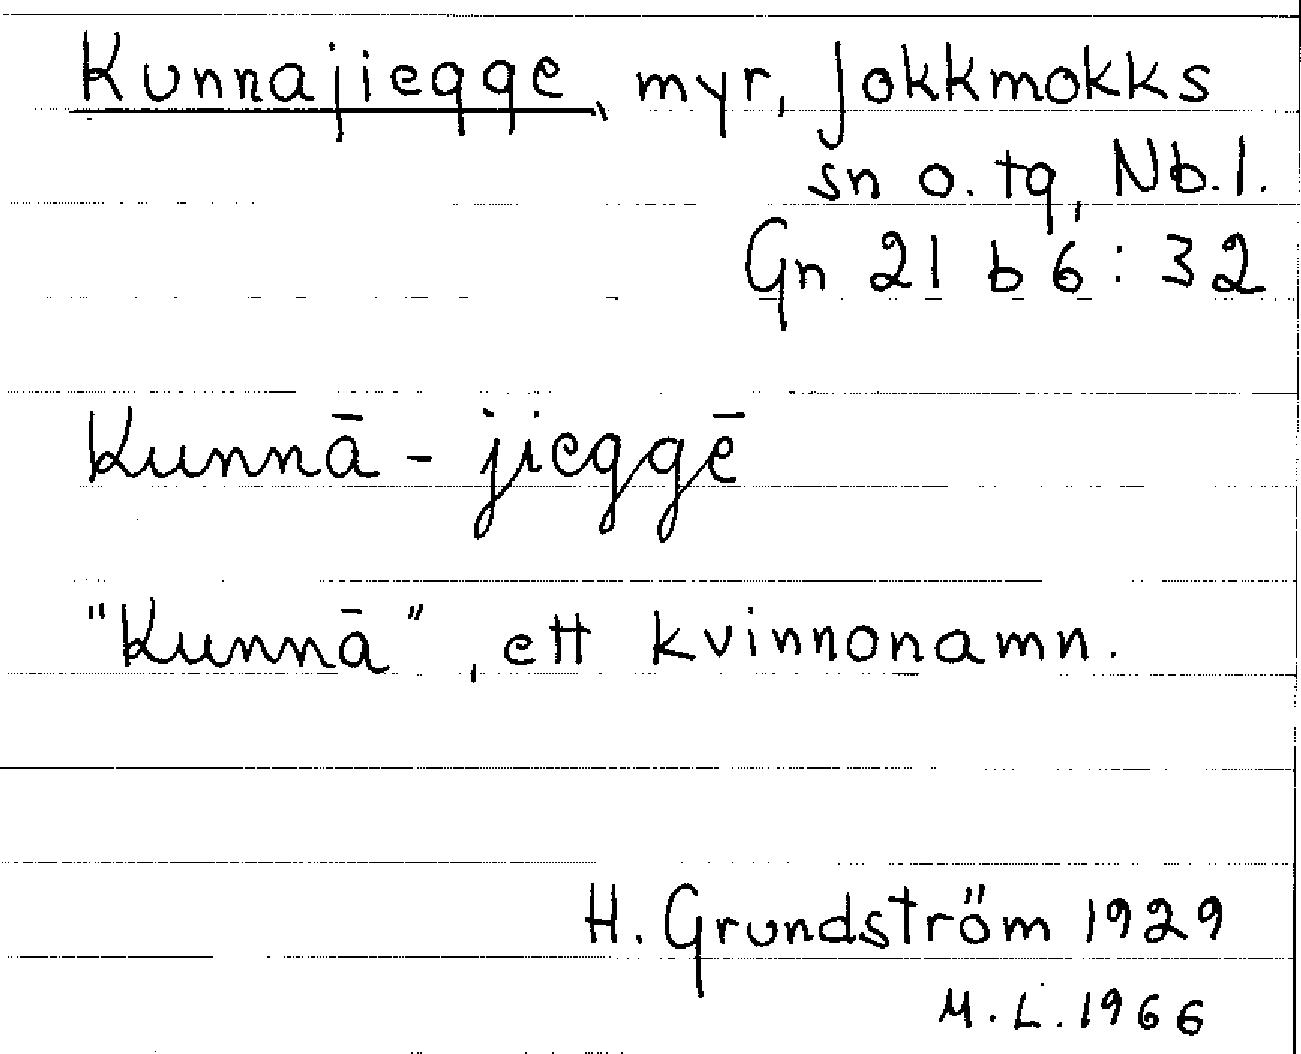 Kunnajiegge, myr, Jokkmokks
sn o. tg, Nb. l.
Gn 21 b 6 : 32
Kunnā - jieggē
"Kunnā", ett kvinnonamn.
H. Grundström 1929
M. L. 1966